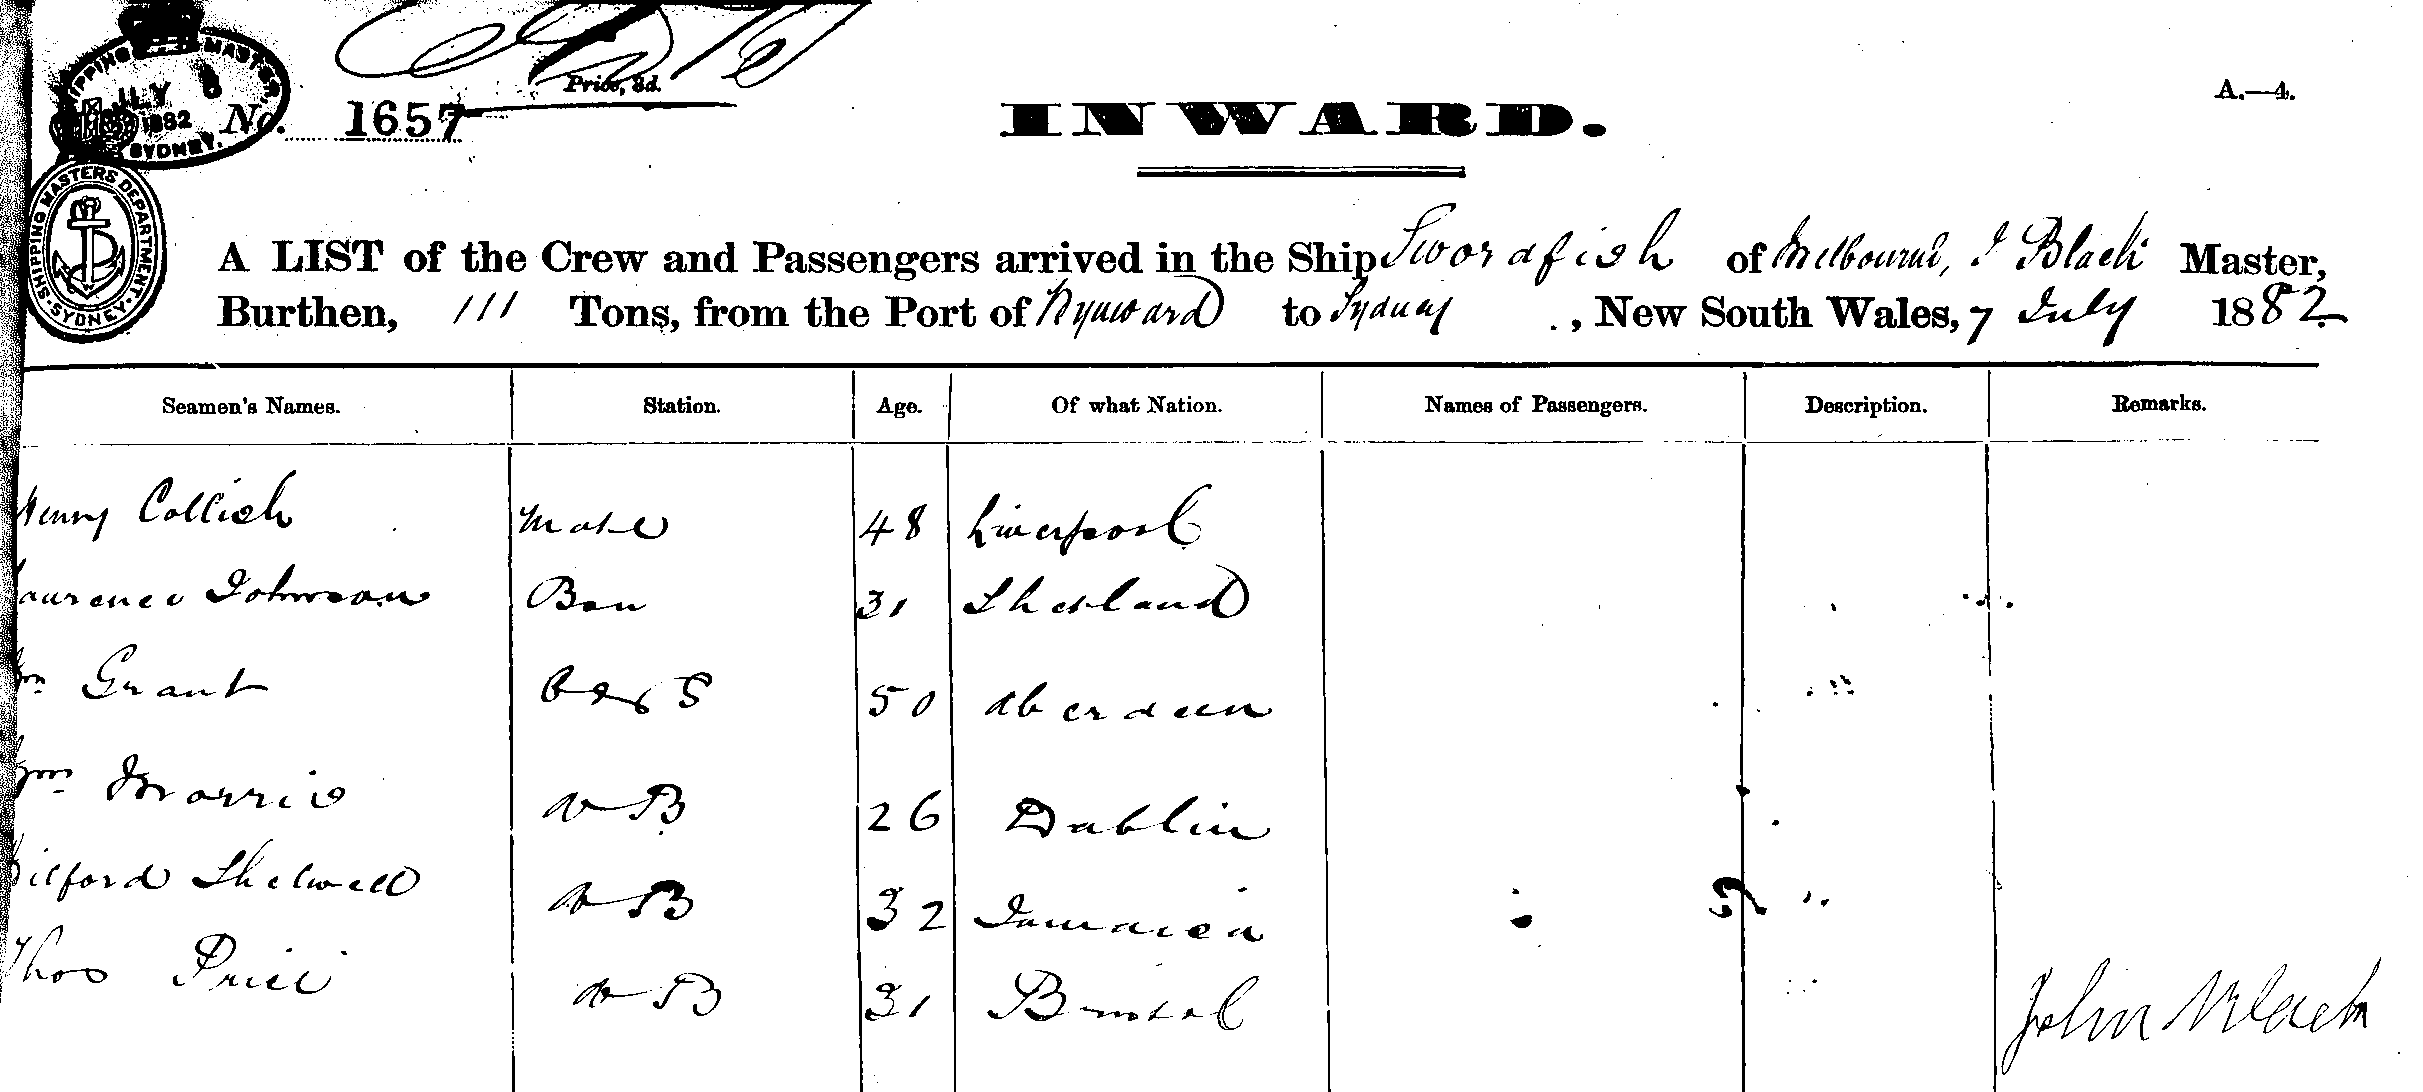 SHIPPING MASTER, SYDNEY.
JULY 8
1882
Price, 3d.
No. 1657
INWARD.
A.—4.
SHIPPING MASTERS DEPARTMENT. SYDNEY.
A LIST of the Crew and Passengers arrived in the Ship Swordfish of Melbourne, J Black Master,
Burthen, 111 Tons, from the Port of Wynward to Sydney, New South Wales, 7 July 1882
Seamen's Names. Station. Age. Of what Nation. Names of Passengers. Description. Remarks.
Henry Mate 48 Liverpool
Laurence Johnson 31 Shetland
Wm Grant 50 Aberdeen
Wm Morris AB 26 Dublin
Shelwell AB 32 Jamaica
Thos Price AB 31 Bristol
John Black